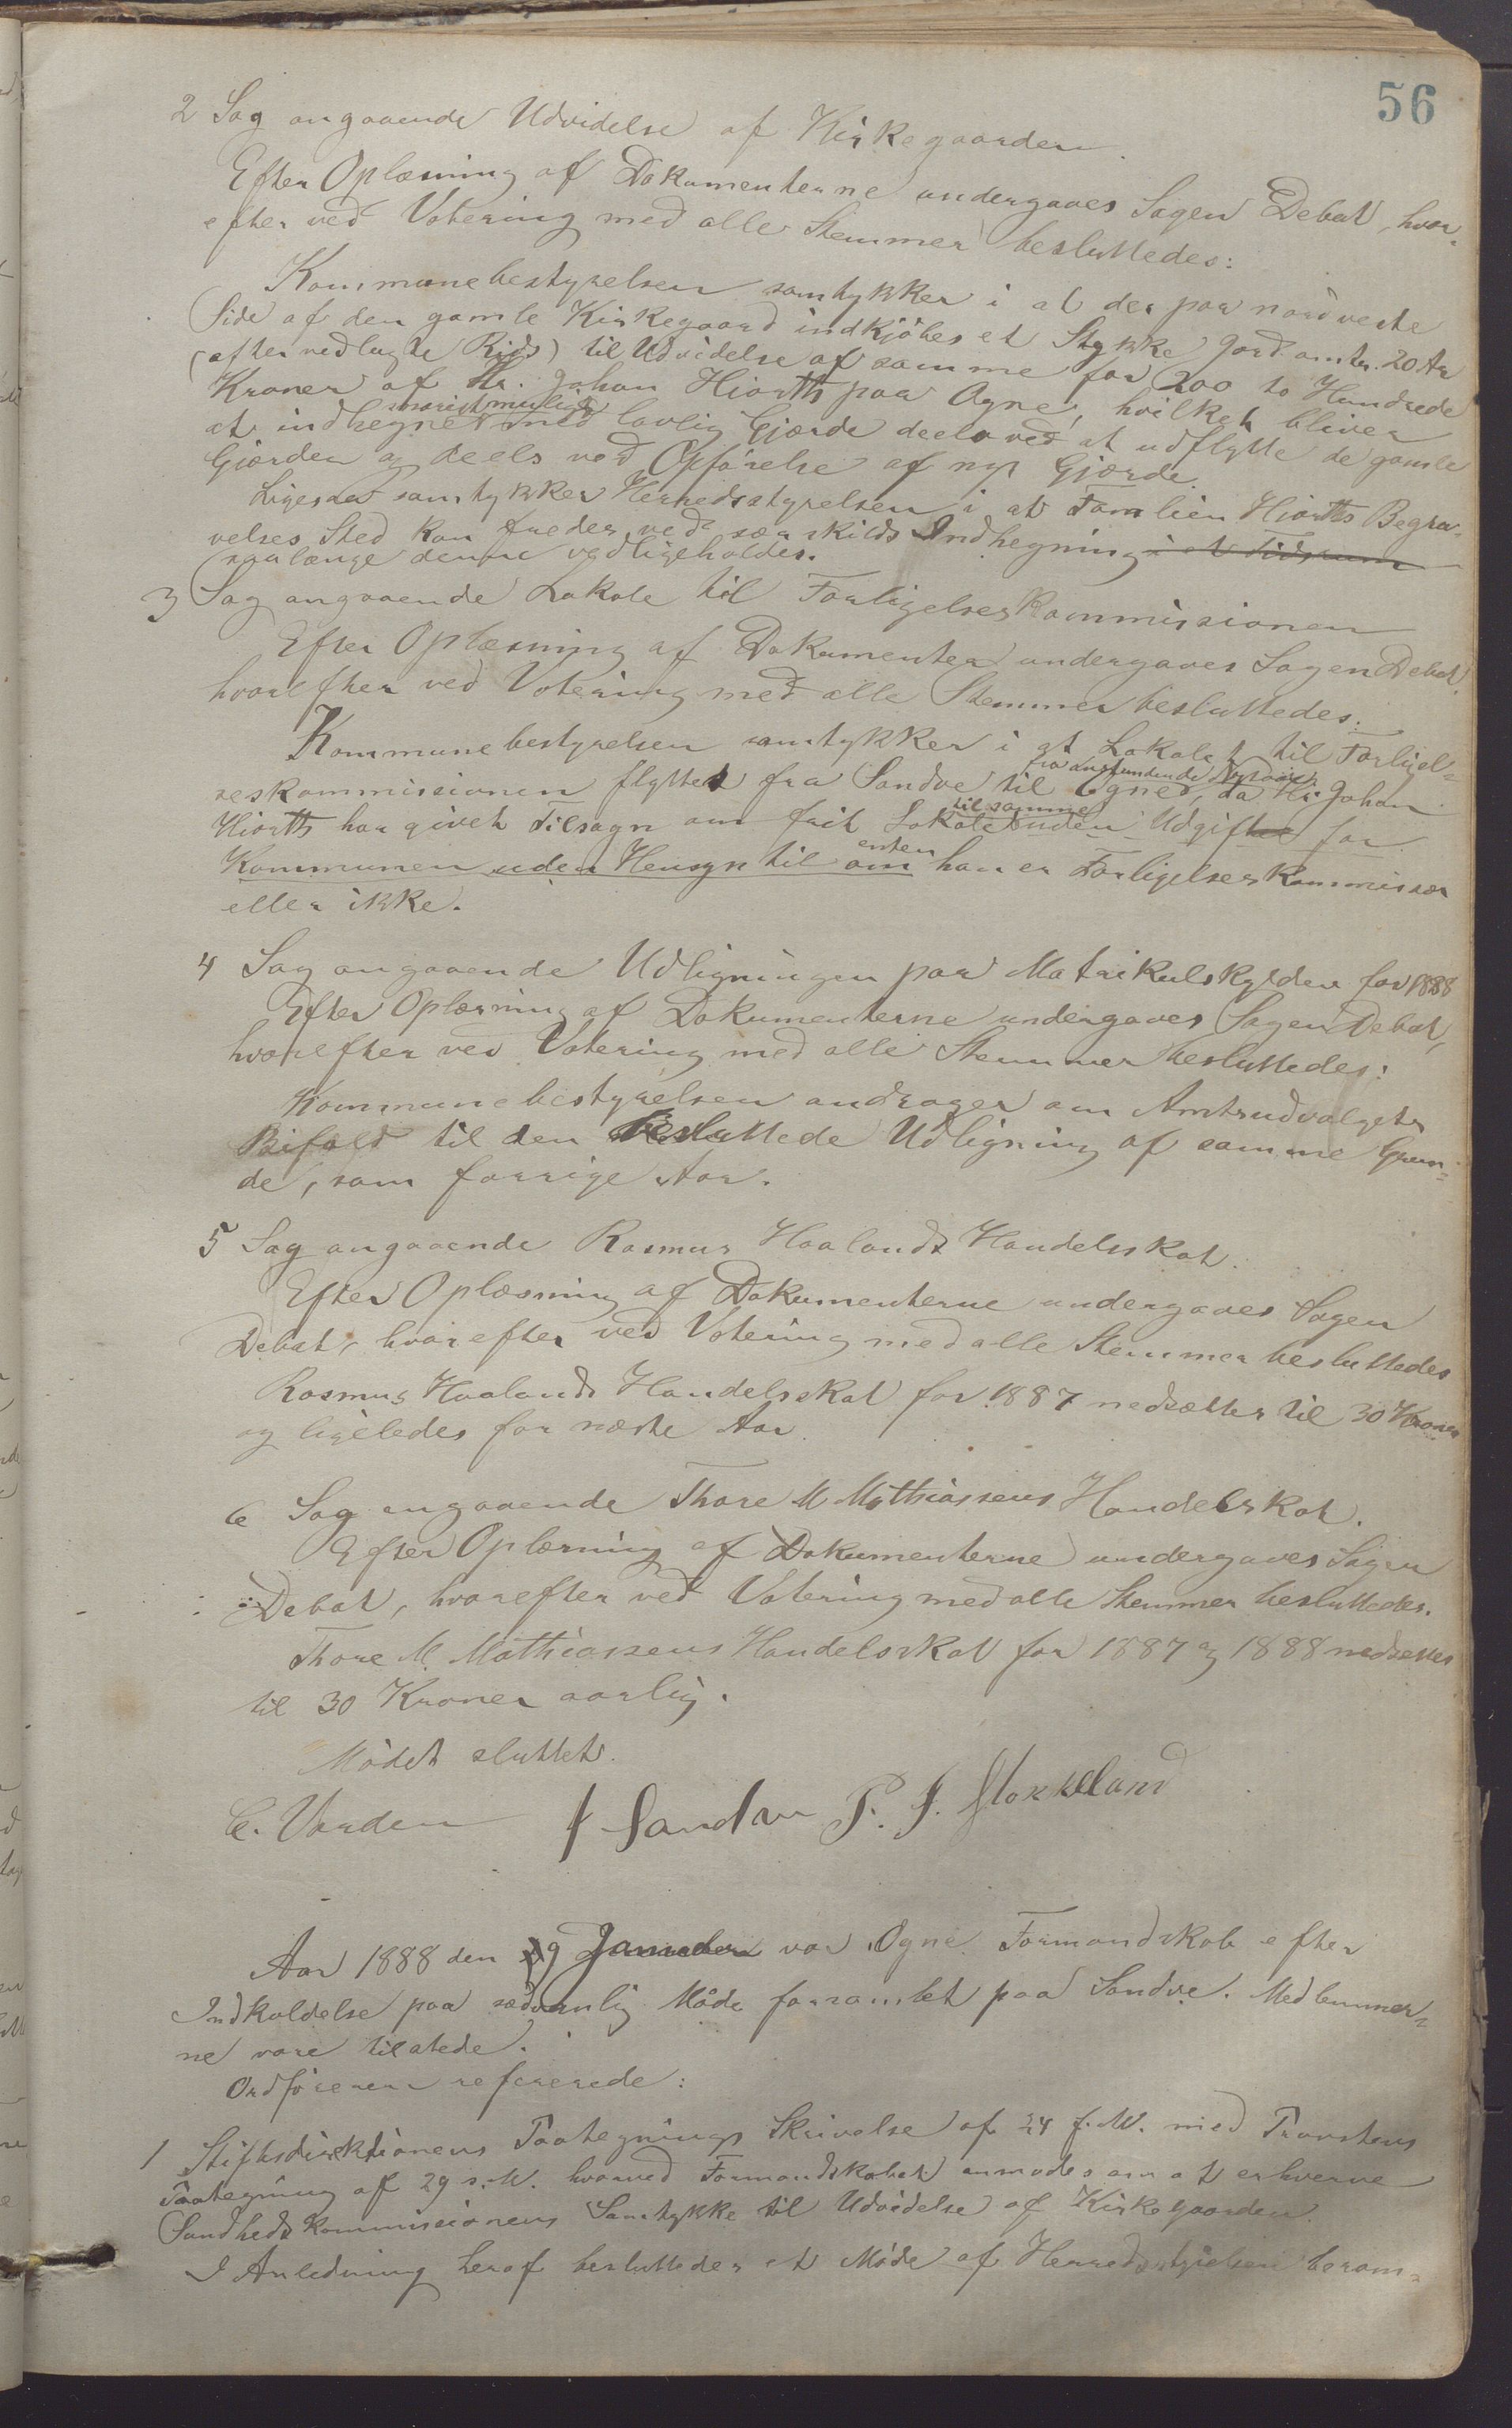 56
2 Sag angaaende Udvidelse af Kirkegaarden.
Efter Oplæsning af Dokumenterne undergaves Sagen Debat, hvor-
efter ved Votering med alle Stemmer besluttedes:
Kommunebestyrelsen samtykker i at der paa nordvestre
Side af den gamle Kirkegaard indkjøbes et Stykke Jord omtr. 20 Ar
(efter vedlagte Rids) til Udvidelse af samme for 200 to Hundrede
Kroner af Hr. Johan Hiorth paa Ogne, hvilket bliver
snarest muligt
at indhegne med lovlig Gjærde deels ved at udflytte de gamle
Gjærder og deels ved Opførelse af nyt Gjærde.
Ligesaa samtykker Herredsstyrelsen i at Familien Hiorths Begra-
velses Sted kan fredes ved særskilds Indhegning i et Tidsrum
saalænge denne vedligeholdes.
3 Sag angaaende Lokale til Forligelseskommissionen
Efter Oplæsning af Dokumenter undergaves Sagen Debat,
hvorefter ved Votering med alle Stemmer besluttedes:
Kommunebestyrelsen samtykker i at Lokalet til Forligel-
fra anstundende Nytaar
seskommissionen flyttes fra Sandve til Ogne, da Hr. Johan
til samme
Hiorth har givet Tilsagn om frit Lokale uden Udgifter for
enten
Kommunen uden Hensyn til om han er Forligelseskommissær
eller ikke.
4 Sag angaaende Udligningen paa Matrikulskylden for 1888
Efter Oplæsning af Dokumenterne undergaves Sagen Debat,
hvorefter ved Votering med alle Stemmer besluttedes:
Kommunebestyrelsen andrager om Amtsudvalgets
Bifald til den besluttede Udligning af samme Grun-
de, som forrige Aar.
5 Sag angaaende Rasmus Haalands Handelsskat.
Efter Oplæsning af Dokumenterne undergaves Sagen
Debat, hvorefter ved Votering med alle Stemmer besluttedes
Rasmus Haalands Handelsskat for 1887 nedsættes til 30 Kroner
og ligeledes for næste Aar.
6 Sag angaaende Thore M Mathiassens Handelskat.
Efter Oplæsning af Dokumenterne undergaves Sagen
Debat, hvorefter ved Votering med alle Stemmer besluttedes.
Thore M. Mathiassens Handelsskat for 1887 og 1888 nedsættes
til 30 Kroner aarlig.
Mødet sluttet.
C. Varden J Sandve P. J. Stokkeland
Aar 1888 den 9 Januar var Ogne Formandskab efter
Indkaldelse paa sædvanlig Maade forsamlet paa Sandve. Medlemmer-
ne vare tilstede.
Ordføreren refererede:
1 Stiftsdirektionens Paategnings Skrivelse af 24 f. M. med Provstens
Paategning af 29 s. M. hvorved Formandskabet anmodes om at erhverve
Sundhedskommissionens Samtykke til Udvidelse af Kirkegaarden.
I Anledning heraf besluttedes et Møde af Herredsstyrelsen beram-